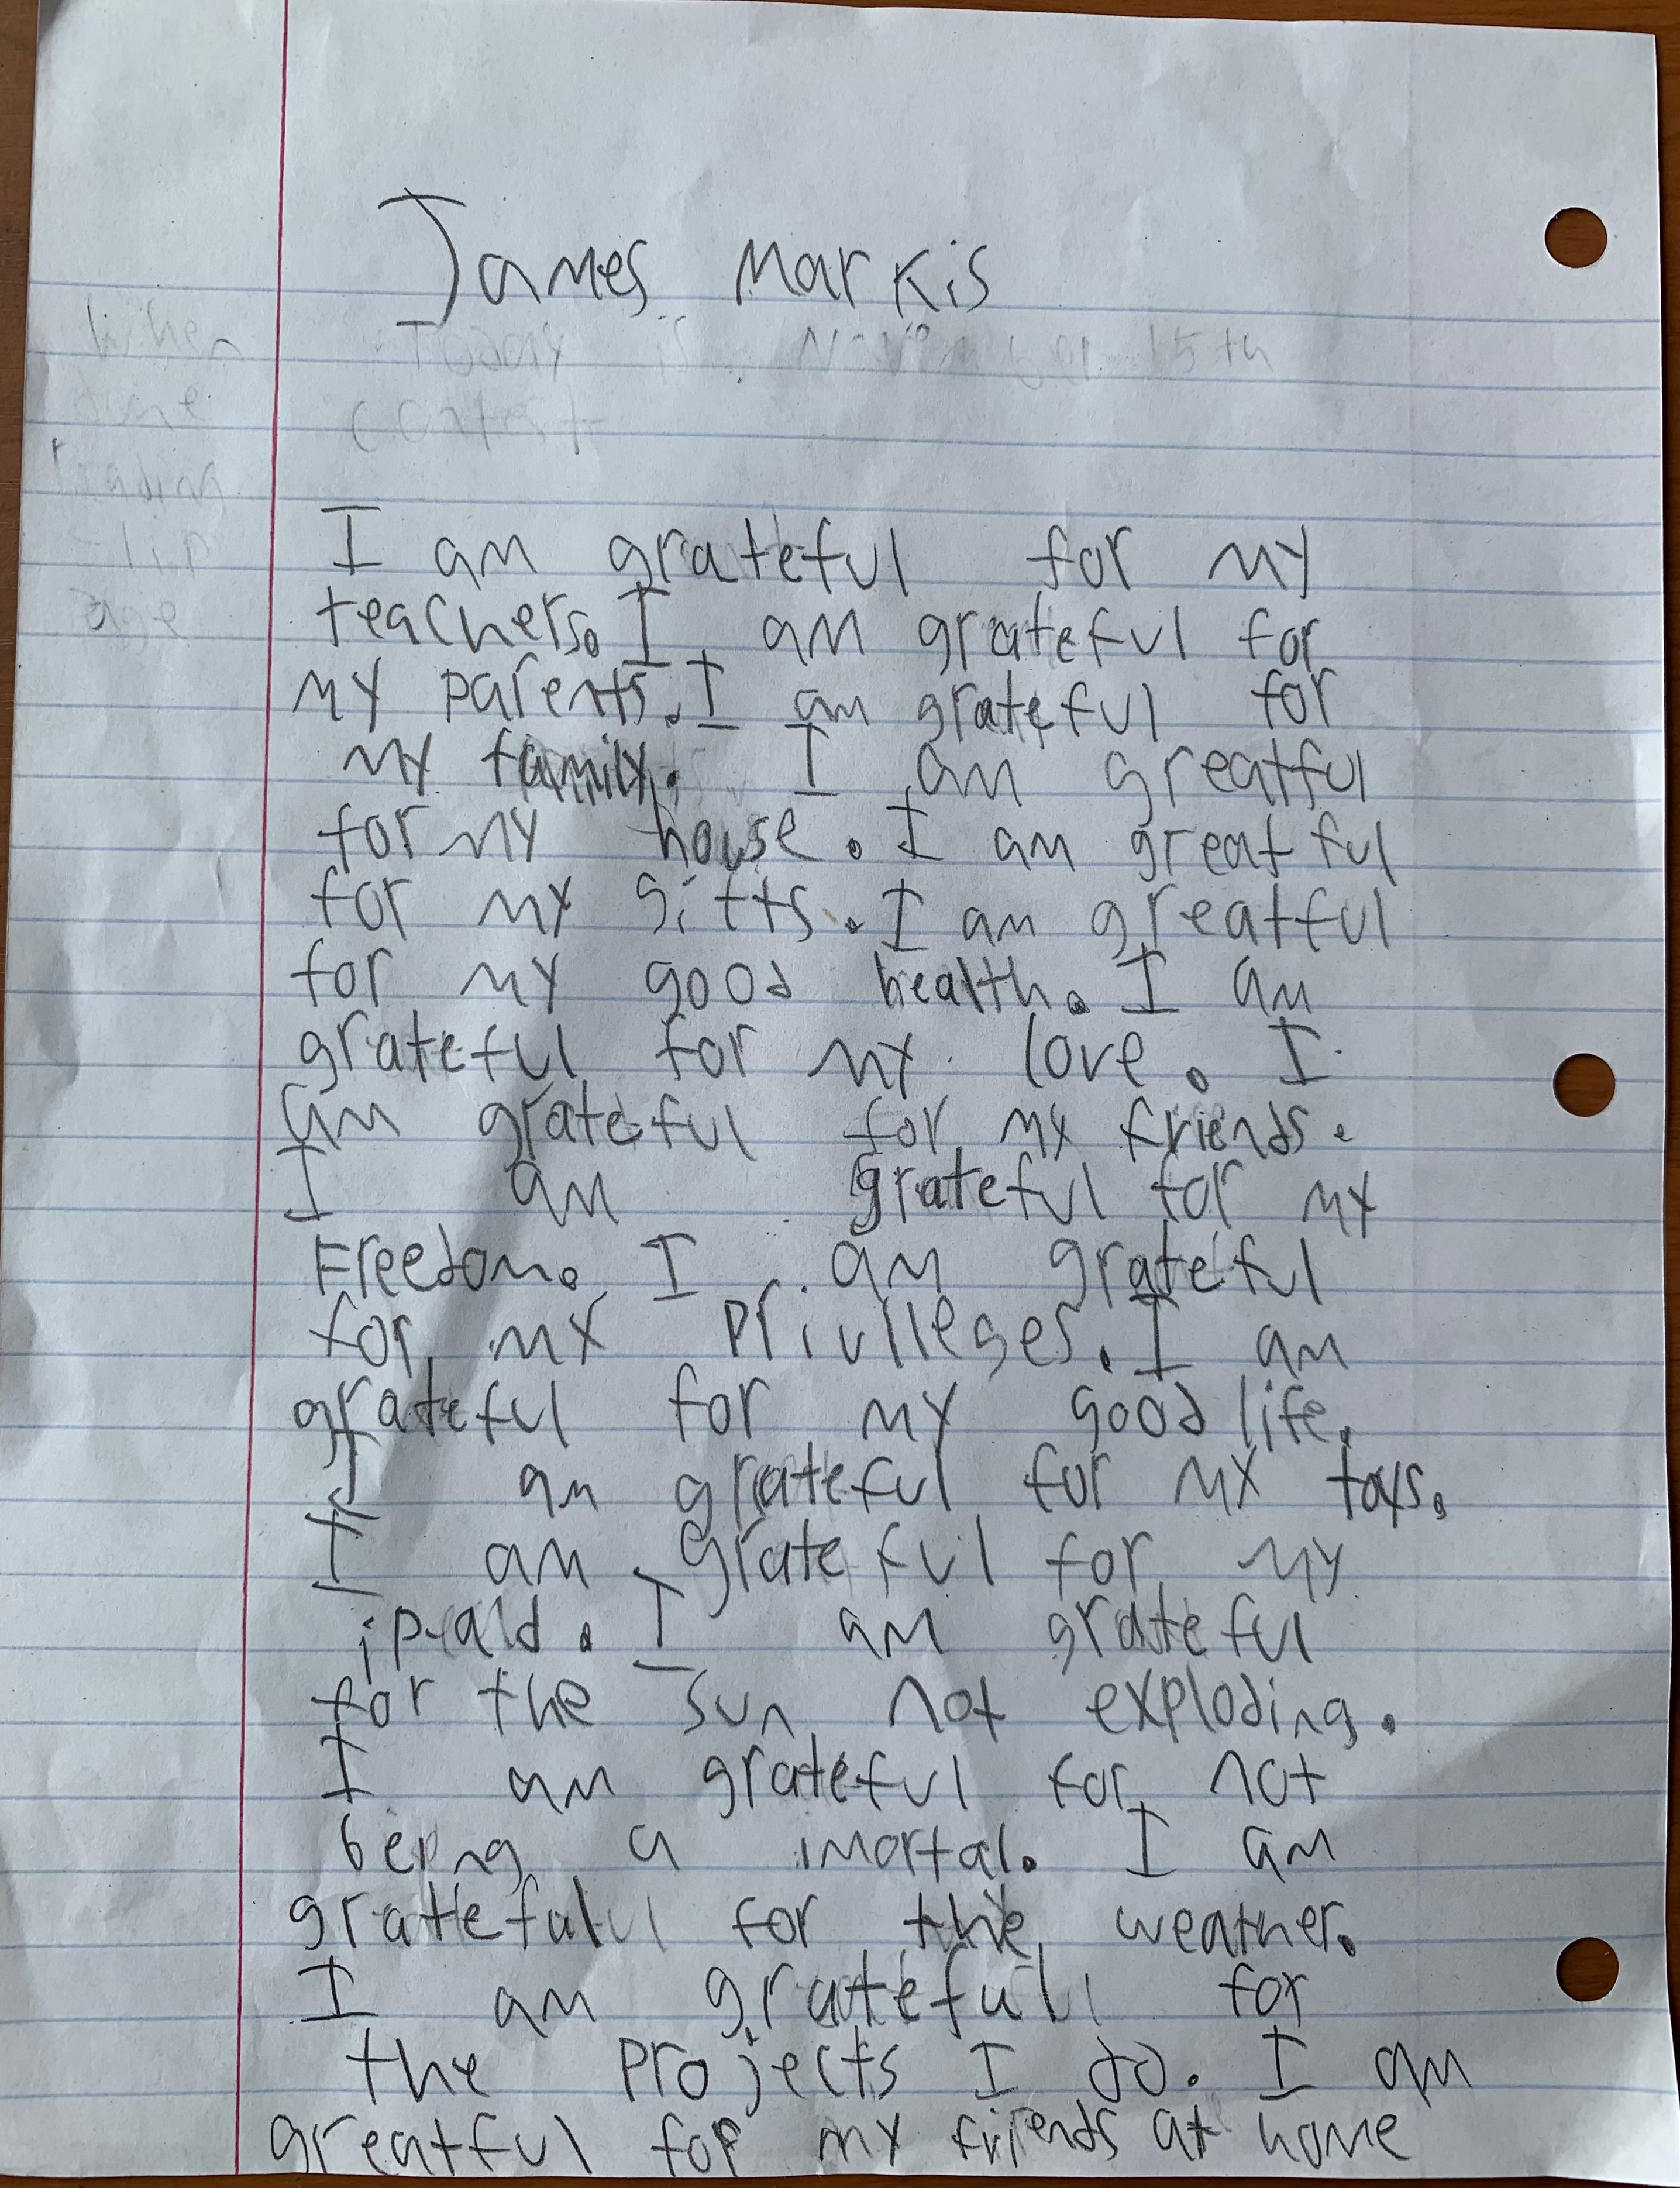 James Markis
Today is November 15th
I am grateful for my
teachers. I am grateful for
my parents. I am grateful for
my family. I am greatful
for my house. I am greatful
for my gifts. I am greatful
for my good health. I am
grateful for my love. I
am grateful for my friends.
I am grateful for my
Freedom. I am grateful
for my privlleges. I am
grateful for my good life.
I am grateful for my toys.
I am grateful for my
I am grateful
for the sun not exploding.
I am grateful for not
being a imortal. I am
grateful for the weather.
I am grateful for
the projects I do. I am
greatful for my friends at home